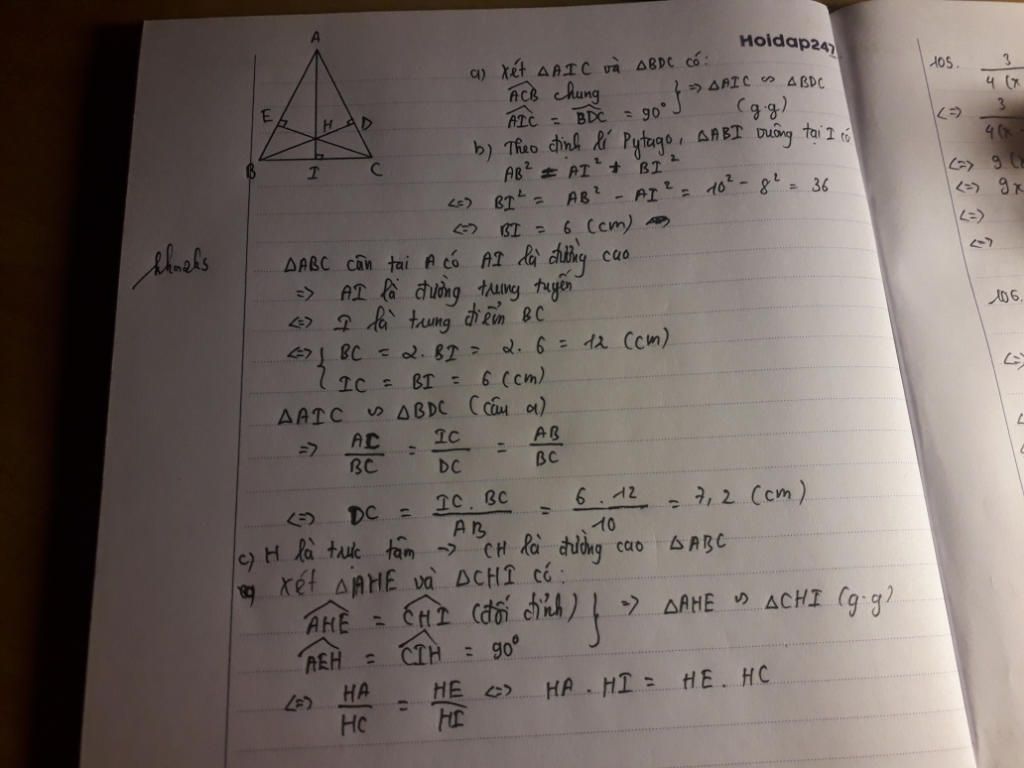 Hoidap247
A
E
D
H
B
I
C
a) Xét △AIC và △BDC có:
ACB chung
AIC = BDC = 90° } => △AIC ∽ △BDC
(g.g)
b) Theo định lí Pytago, △ABI vuông tại I có
AB² = AI² + BI²
<=> BI² = AB² - AI² = 10² - 8² = 36
<=> BI = 6 (cm)
△ABC cân tại A có AI là đường cao
=> AI là đường trung tuyến
<=> I là trung điểm BC
<=> { BC = 2. BI = 2. 6 = 12 (cm)
IC = BI = 6 (cm)
△AIC ∽ △BDC (câu a)
=> AC/BC = IC/DC = AB/BC
<=> DC = IC. BC/AB = 6 . 12/10 = 7,2 (cm)
c) H là trực tâm -> CH là đường cao △ABC
Xét △AHE và △CHI có:
AHE = CHI (đối đỉnh)
AEH = CIH = 90° } => △AHE ∽ △CHI (g.g)
<=> HA/HC = HE/HI <=> HA . HI = HE . HC
105. 3
4(x
<=> 3
4(x
<=> 9(x
<=> 9x
<=>
<=>
106.